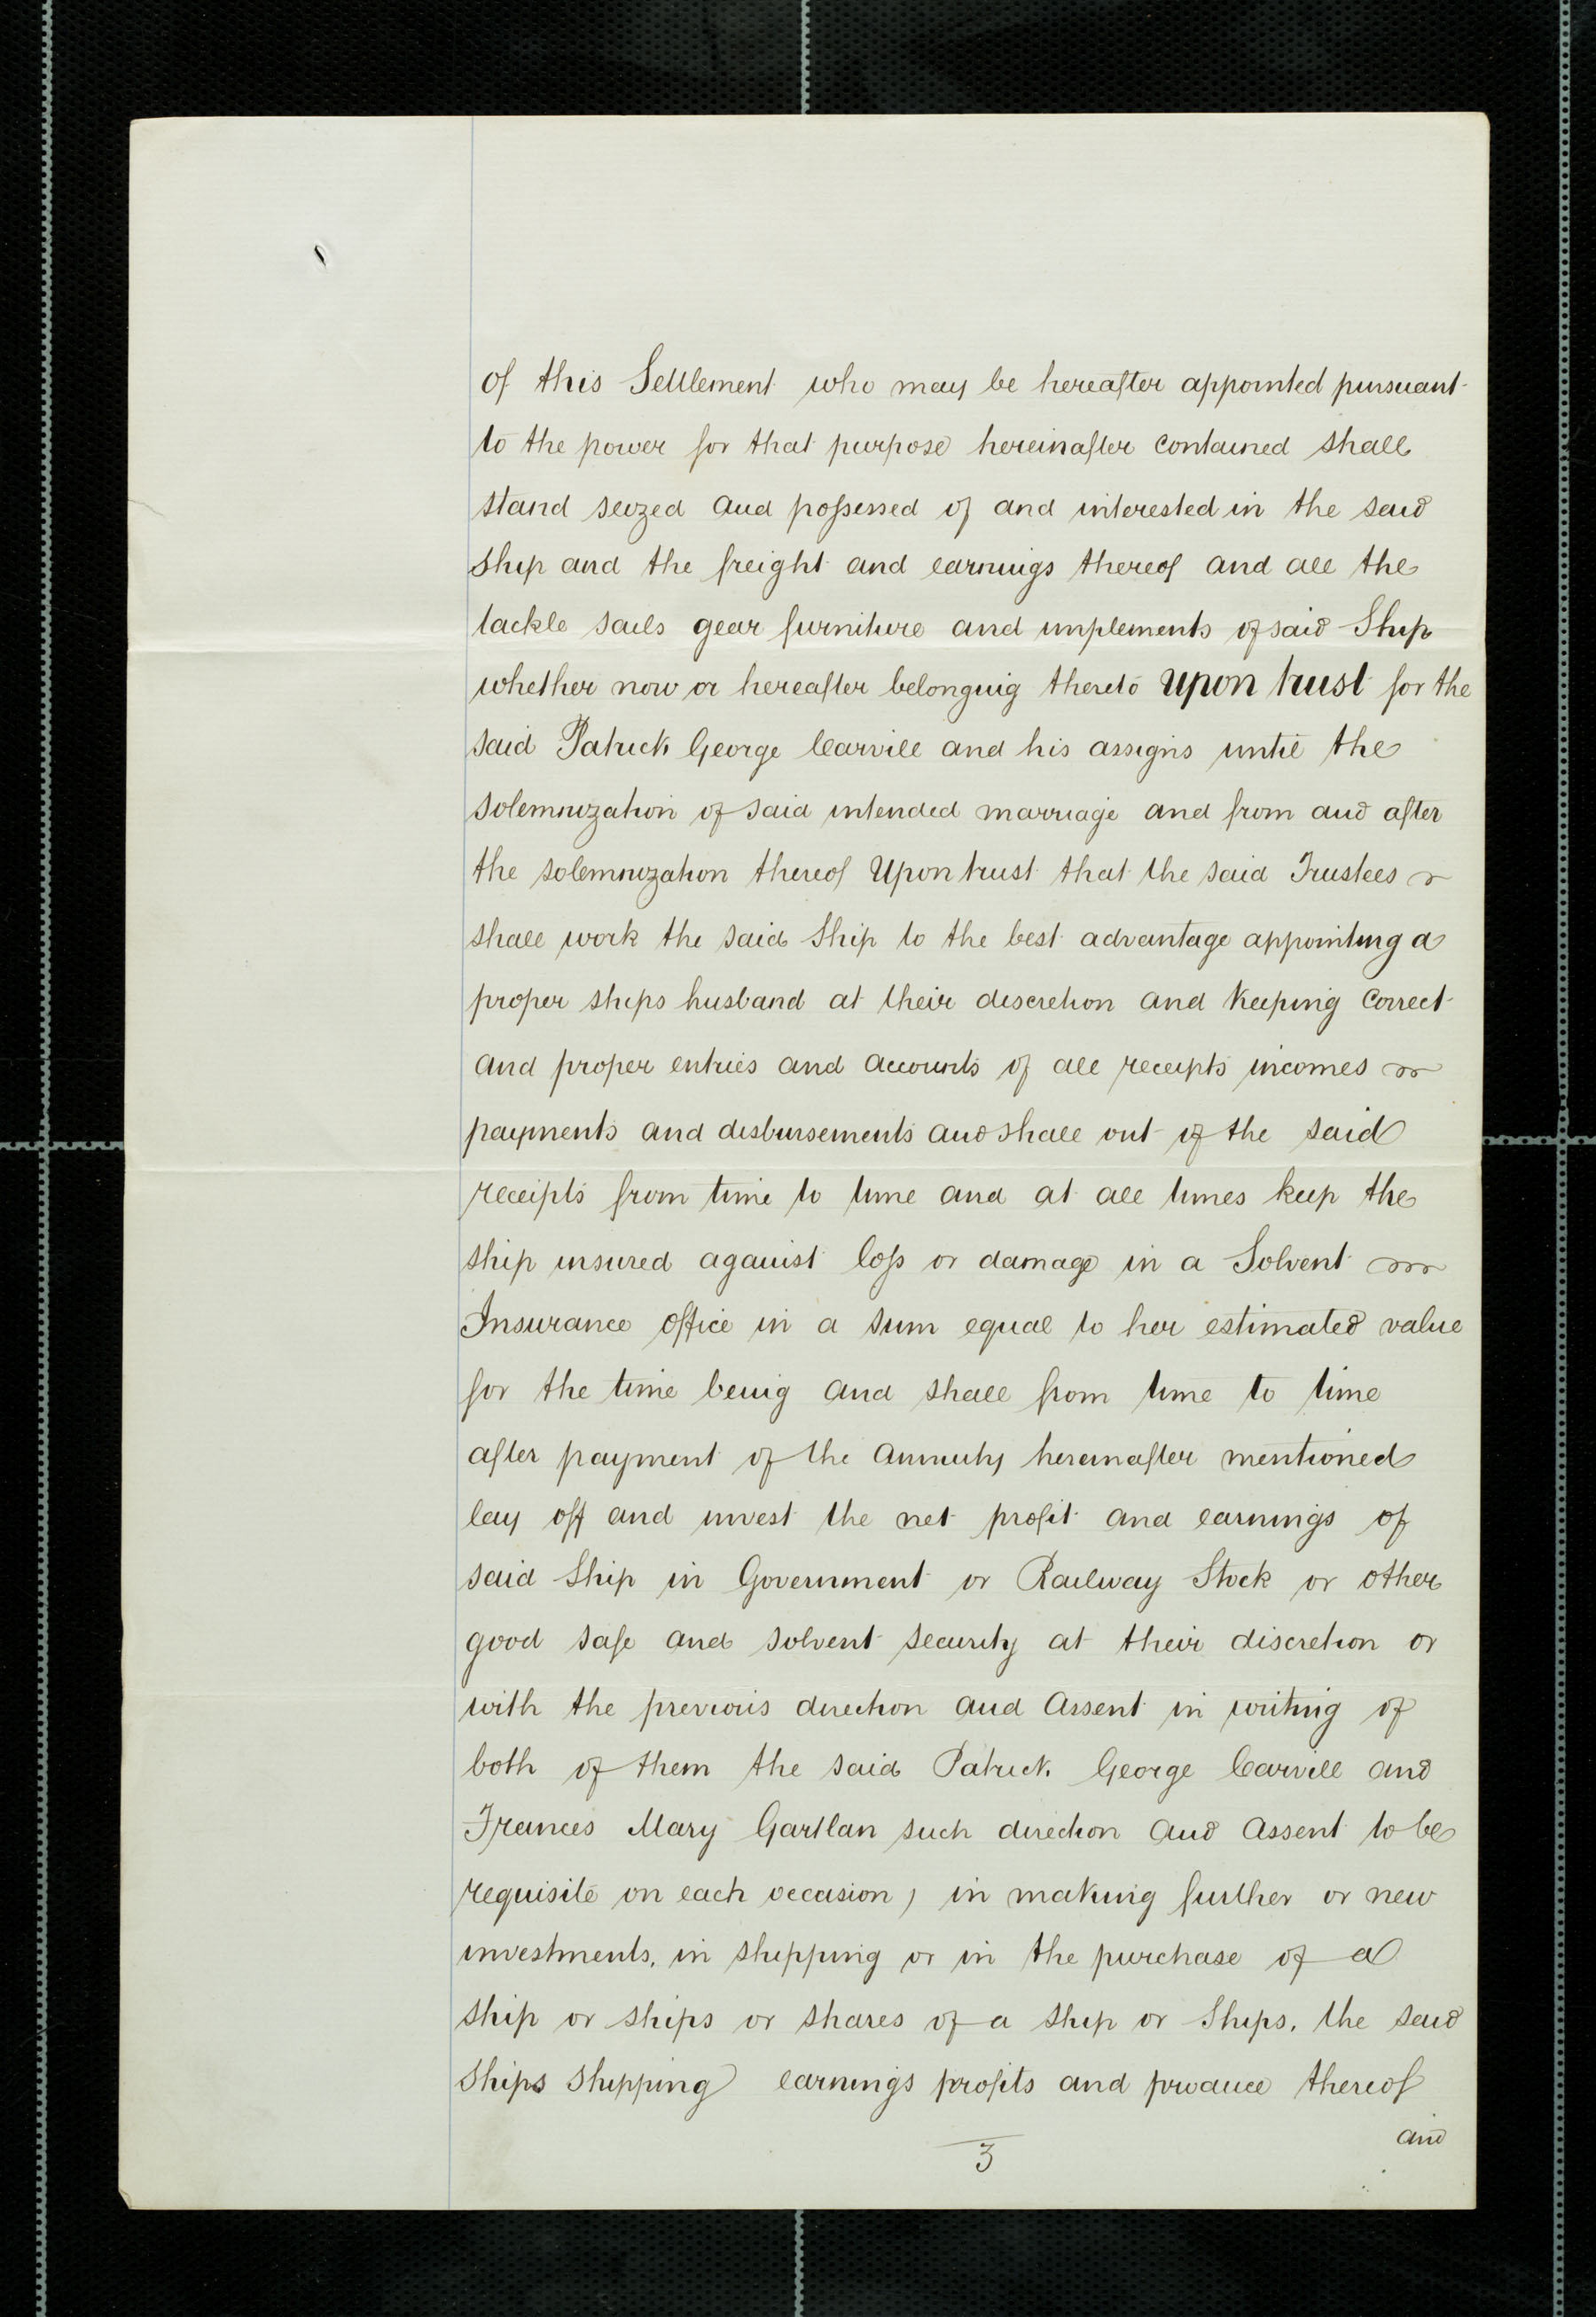 of this Settlement who may be hereafter appointed pursuant
to the power for that purpose hereinafter contained shall
stand seized and possessed of and interested in the said
ship and the freight and earnings thereof and all the
tackle sails gear furniture and implements of said Ship
whether now or hereafter belonging thereto upon trust for the
said Patrick George Carvill and his assigns until the
solemnization of said intended marriage and from and after
the solemnization thereof Upon trust that the said Trustees
shall work the said Ship to the best advantage appointing a
proper ships husband at their discretion and keeping correct
and proper entries and accounts of all receipts incomes
payments and disbursements and shall out of the said
receipts from time to time and at all times keep the
ship insured against loss or damage in a Solvent
Insurance office in a sum equal to her estimated value
for the time being and shall from time to time
after payment of the annuity hereinafter mentioned
lay off and invest the net profit and earnings of
said Ship in Government or Railway Stock or other
good safe and solvent security at their discretion or
with the previous direction and assent in writing of
both of them the said Patrick George Carvill and
Frances Mary Gartlan such direction and assent to be
requisite on each occasion, in making further or new
investments, in shipping or in the purchase of a
ship or ships or shares of a ship or Ships, the said
ships shipping earnings profits and produce thereof
and
3